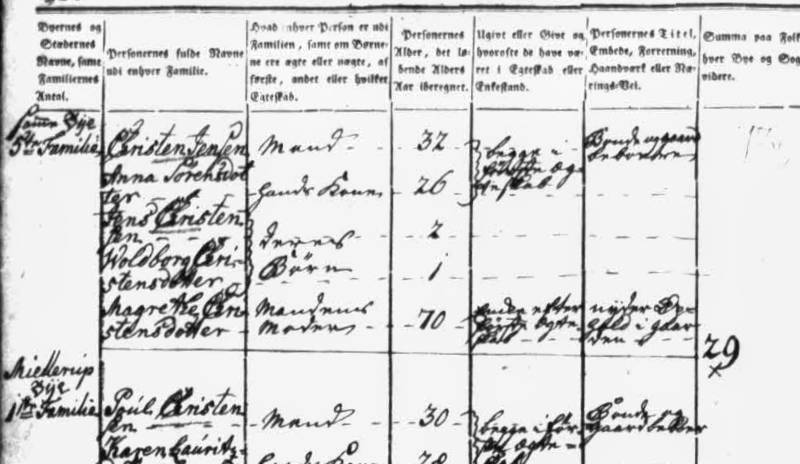 Byernes og Stædernes Navne, samt Familiernes Antal.
Personernes fulde Navne udi enhver Familie.
Hvad enhver Person er udi Familien, samt om Børnene ere ægte eller uægte, af første, andet eller hvilket Egteskab.
Personernes Alder, det løbende Alders Aar iberegnet.
Ugivt eller Givt og hvorofte de have været i Egteskab eller Enkestand.
Personernes Titel, Embede, Forretning, Haandværk eller Nærings-Vei.
Summa paa Folk
hver Bye og Sog
videre.
Samme Bÿe
5te Familie
Christen Jensen
Mand
32
begge i
første æg-
teskab
Bonde og gaard
beboere
Anna
ter
hands Kone
26
Jens Christen-
sen
deres
2
Woldborg Chri-
stensdotter
Børn
1
Magrethe
stensdotter
Mandens
Moder
70
Enke efter
første Ægte-
skab
nyder Op-
hold i gaar-
den
29
x
Miellerup
Bÿe
1te Familie
Poúl Christen
sen
Mand
30
begge i før-
ste ægte-
skab
Bonde og
Gaardbeboer
Karen Laúritz-
hands Kone
28